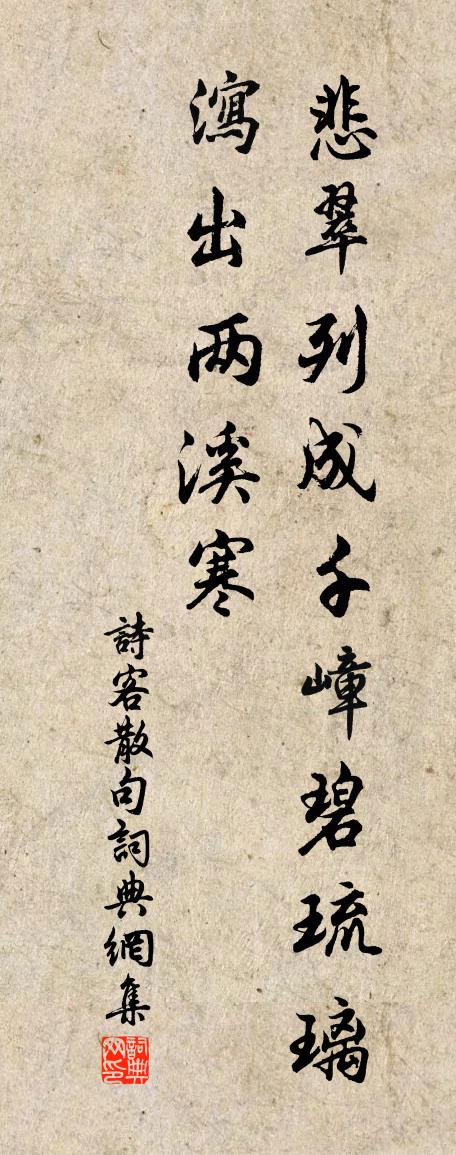 悲翠列成千嶂碧琉璃
瀉出两溪寒
詩客散句詞典網集
詞典网印